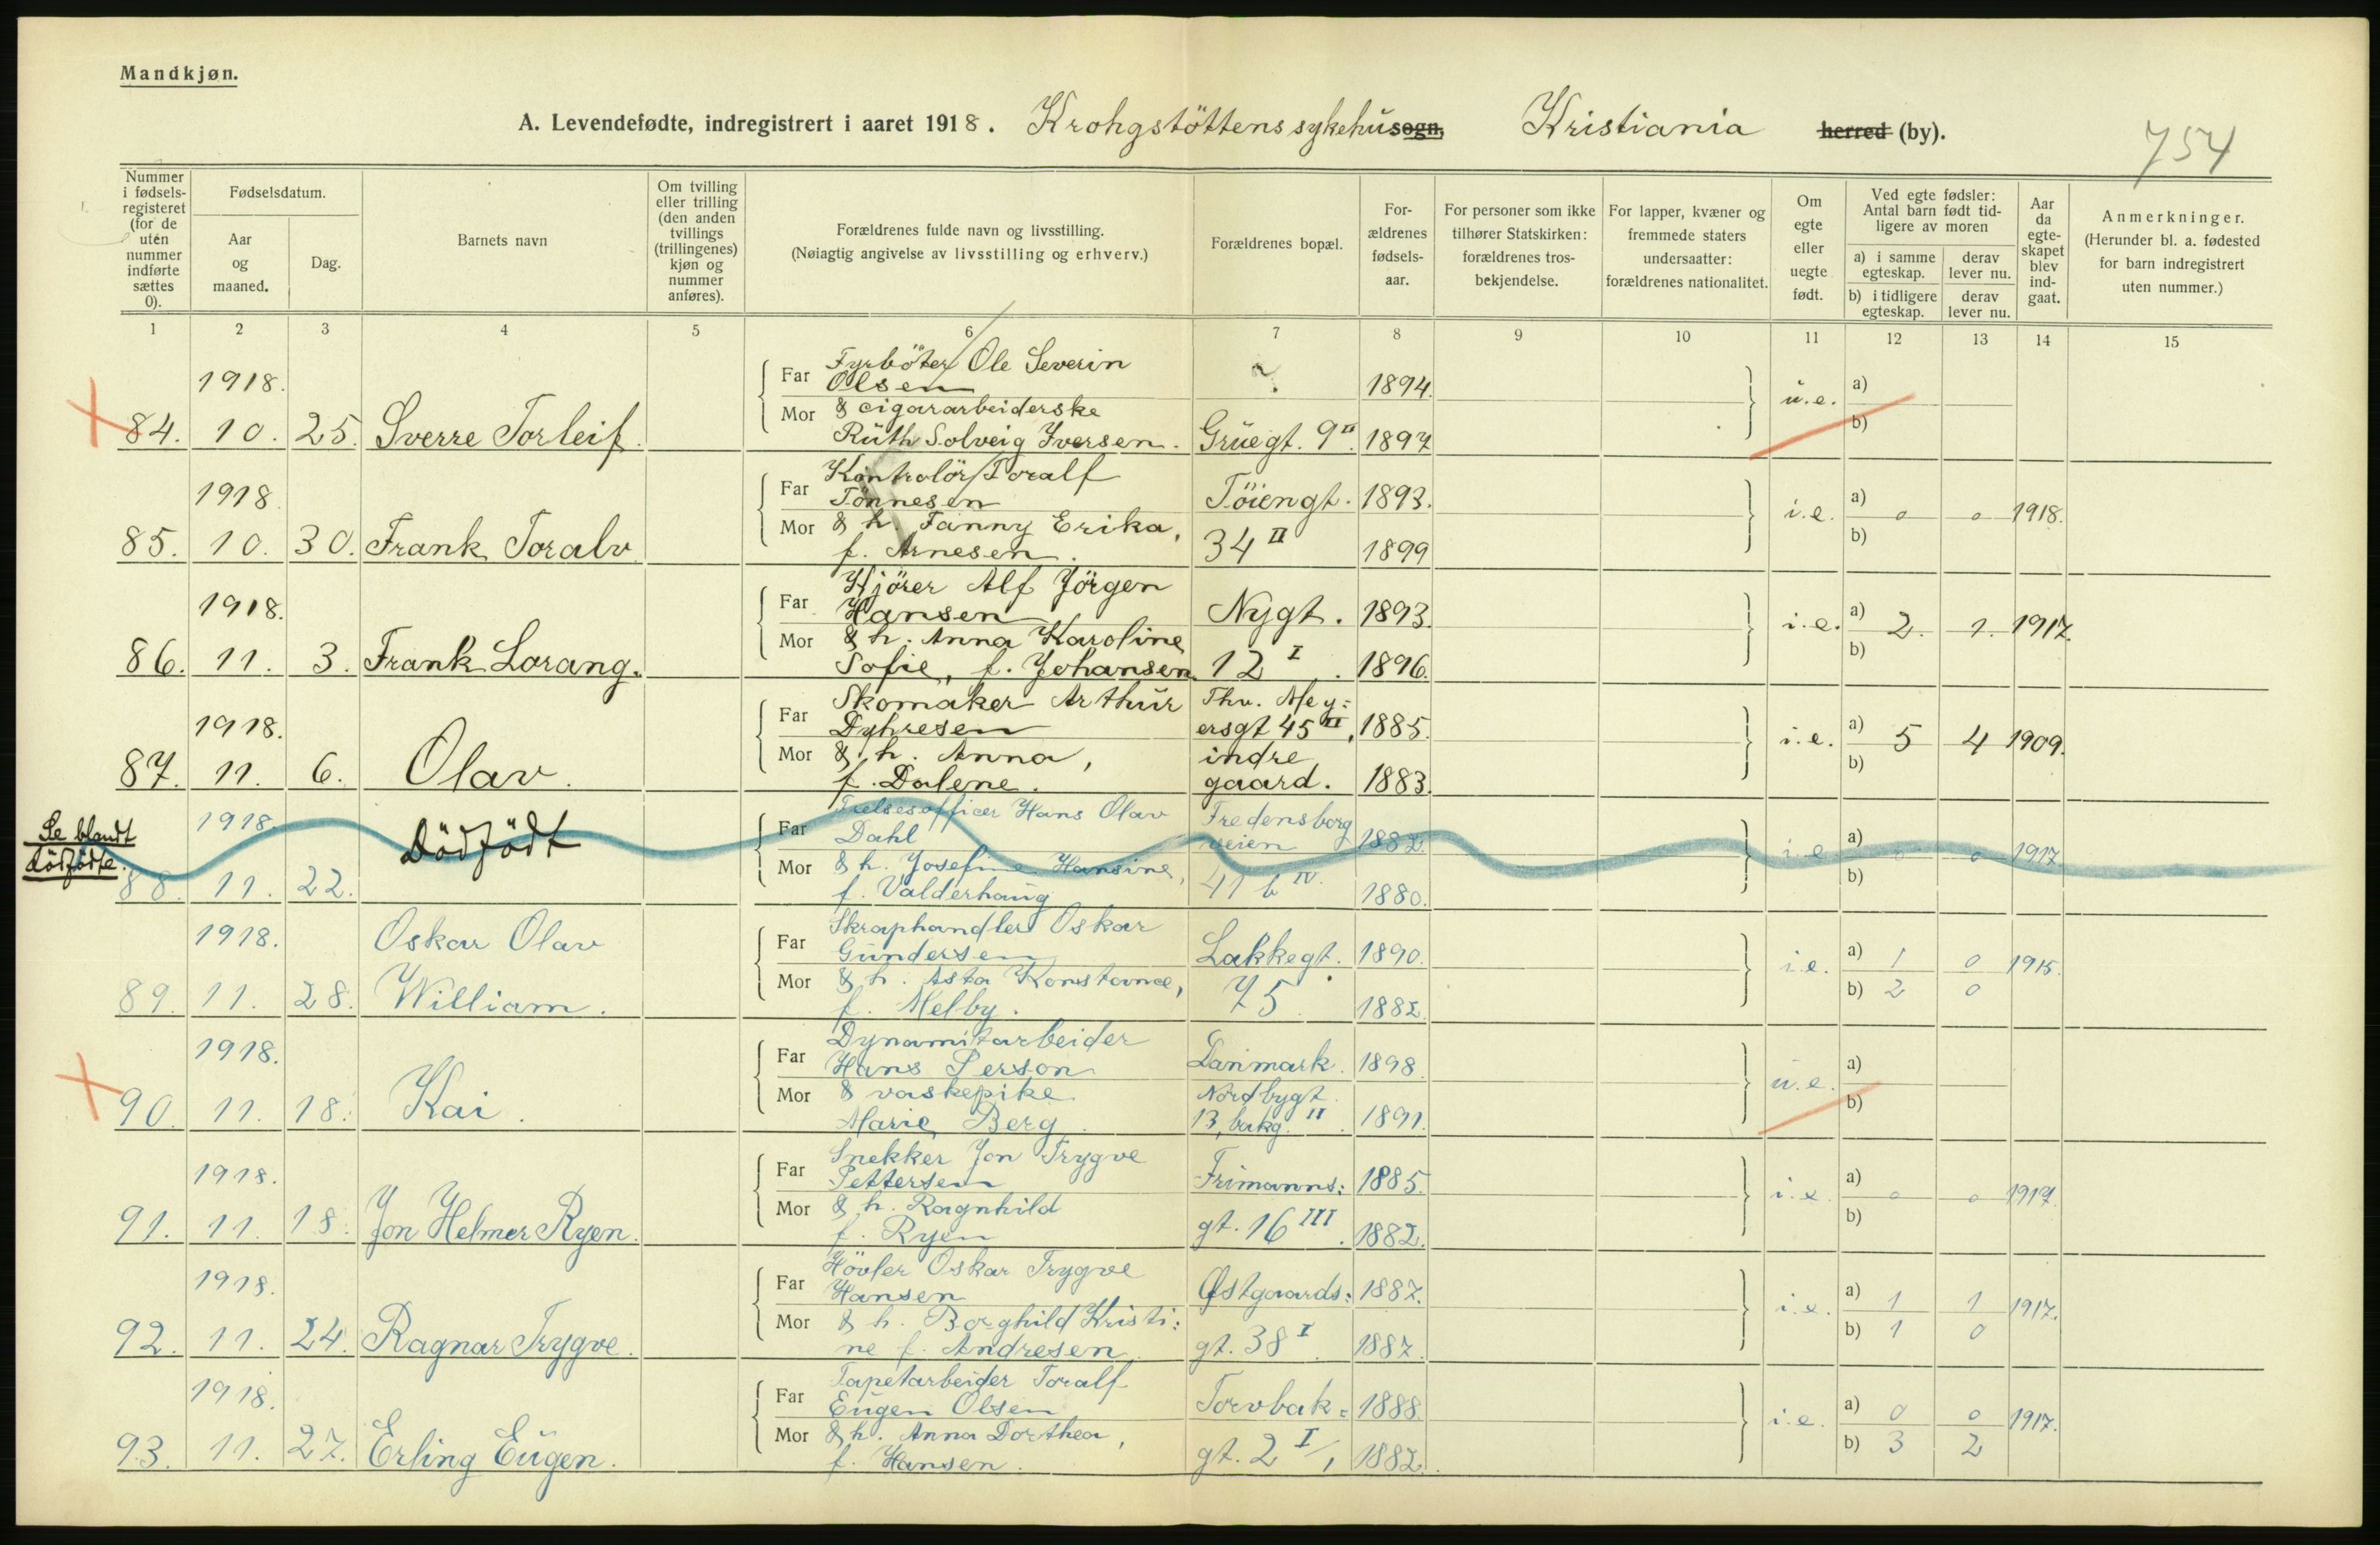 Mandkjøn.
A. Levendefødte, indregistrert i aaret 1918. Krohgstöttens sykehus sogn, Kristiania herred (by).
754
Nummer i fødsels-registeret (for de uten nummer indførte sættes 0).
Fødselsdatum.
Aar og maaned.
Dag.
Barnets navn
Om tvilling eller trilling (den anden tvillings (trillingenes) kjøn og nummer anføres).
Forældrenes fulde navn og livsstilling.
(Nøiagtig angivelse av livsstilling og erhverv.)
Forældrenes bopæl.
For-ældrenes fødsels-aar.
For personer som ikke tilhører Statskirken: forældrenes tros-bekjendelse.
For lapper, kvæner og fremmede staters undersaatter: forældrenes nationalitet.
Om egte eller uegte født.
Ved egte fødsler: Antal barn født tid-ligere av moren
a) i samme egteskap.
derav lever nu.
b) i tidligere egteskap.
derav lever nu.
Aar da egte-skapet blev ind-gaat.
Anmerkninger.
(Herunder bl. a. fødested for barn indregistrert uten nummer.)
1 2 3 4 5 6 7 8 9 10 11 12 13 14 15
1918. Far Fyrböter Ole Severin
Olsen ? 1894. u.e. a)
Mor & cigararbeiderske b)
84. 10. 25. Sverre Torleif. Ruth Solveig Iversen. Grüegt. 9 II. 1897
1918 Far Kontrolör Toralf
Tönnesen Töiengt. 1893. i.e. a) 0 0 1918.
Mor & h. Fanny Erika, b)
85. 10. 30. Frank Toralv f. Arnesen. 34 II 1899
1918. Far Kjörer Alf Jörgen
Hansen Nygt. 1893. i.e. a) 2. 1. 1917.
Mor & h. Anna Karoline b)
86. 11. 3. Frank Lorang. Sofie, f. Johansen. 12 I. 1896.
1918. Far Skomaker Arthur Thv. Mey:
Dyhresen ersgt 45 II, 1885. i.e. a) 5 4 1909.
Mor & h. Anna, indre b)
87. 11. 6. Olav. f. Dalene. gaard. 1883.
Se blandt dödfödte.
1918. Dödfödt Far Frelsesofficer Hans Olav Fredensborg
Dahl veien 1882. i.e. a) 0 0 1917
Mor & h. Josefine Hansine, b)
88. 11. 22. f. Valderhaug 41 b IV. 1880.
1918. Oskar Olav Far Skraphandler Oskar
Gundersen Lakkegt. 1890. i.e. a) 1 0 1915.
Mor & h. Asta Konstance, b) 2 0
89. 11. 28. William. f. Melby. 75. 1882.
1918. Far Dynamitarbeider
Hans Person Danmark. 1898. u.e. a)
Mor & vaskepike Nordbygt. b)
90. 11. 18. Kai. Marie Berg. 13, bakg. II. 1891.
1918. Far Snekker Jon Trygve
Pettersen Frimanns: 1885. i.e. a) 0 0 1917
Mor & h. Ragnhild b)
91. 11. 18. Jon Helmer Ryen. f. Ryen gt. 16 III. 1882.
1918. Far Hövler Oskar Trygve
Hansen Østgaards: 1887. i.e. a) 1 1 1917.
Mor & h. Borghild Kristi: b) 1 0
92. 11. 24. Ragnar Trygve. ne f. Andresen. gt. 38 I. 1887.
1918. Far Tapetarbeider Toralf
Eugen Olsen Torvbak: 1888. i.e. a) 0 0 1917.
Mor & h. Anna Dorthea, b) 3 2
93. 11. 27. Erling Eugen. f. Hansen. gt. 2 I/1 1882.